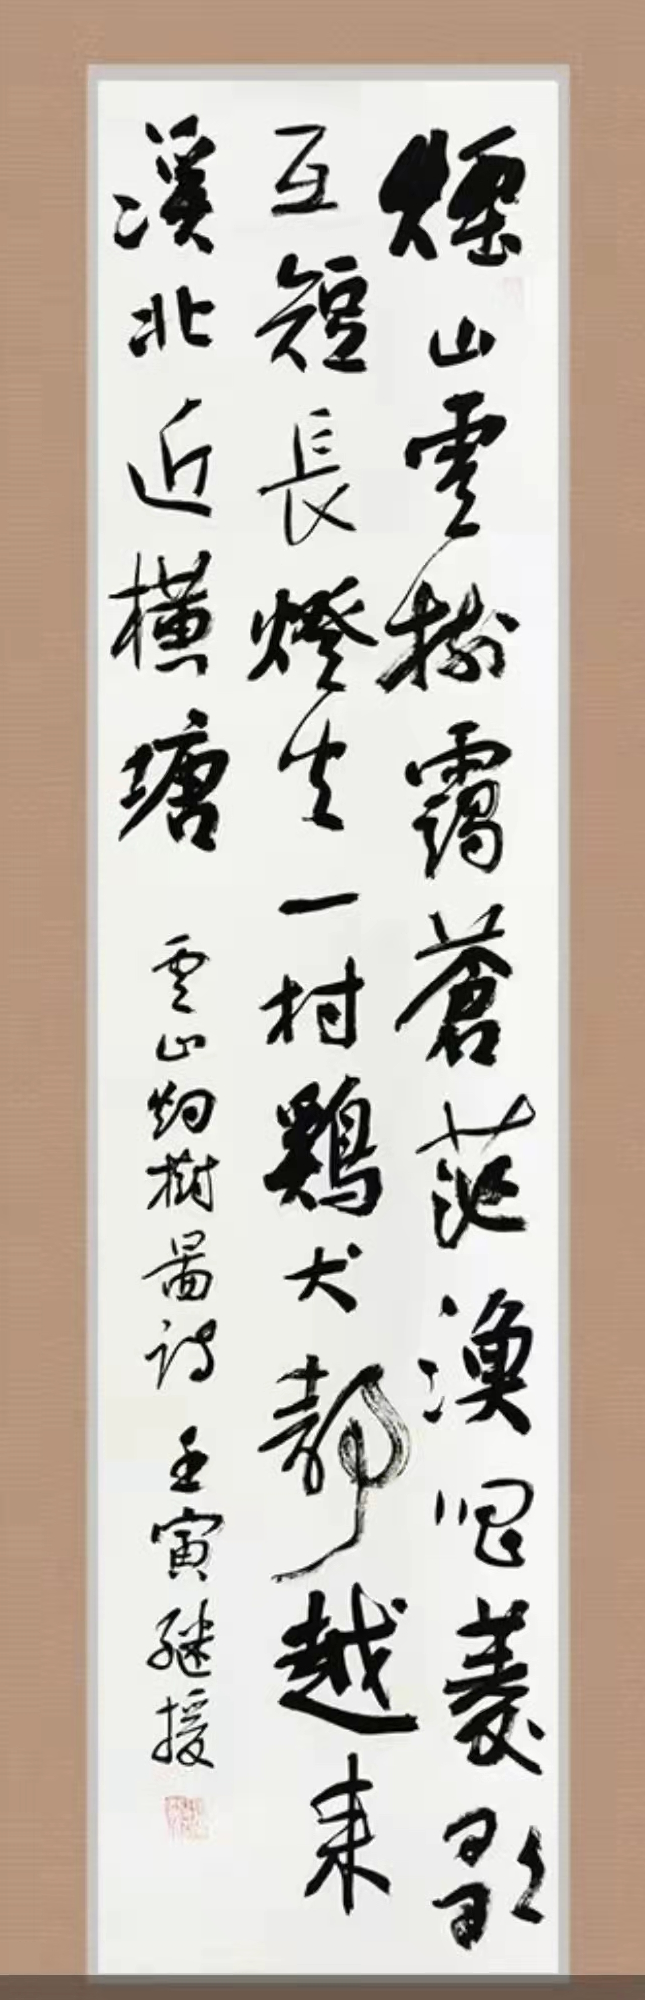 煙山雲樹靄蒼茫漁唱菱歌
互短長燈火一村鷄犬静越来
溪北近横塘
雲山烟樹圖詩 壬寅 继援